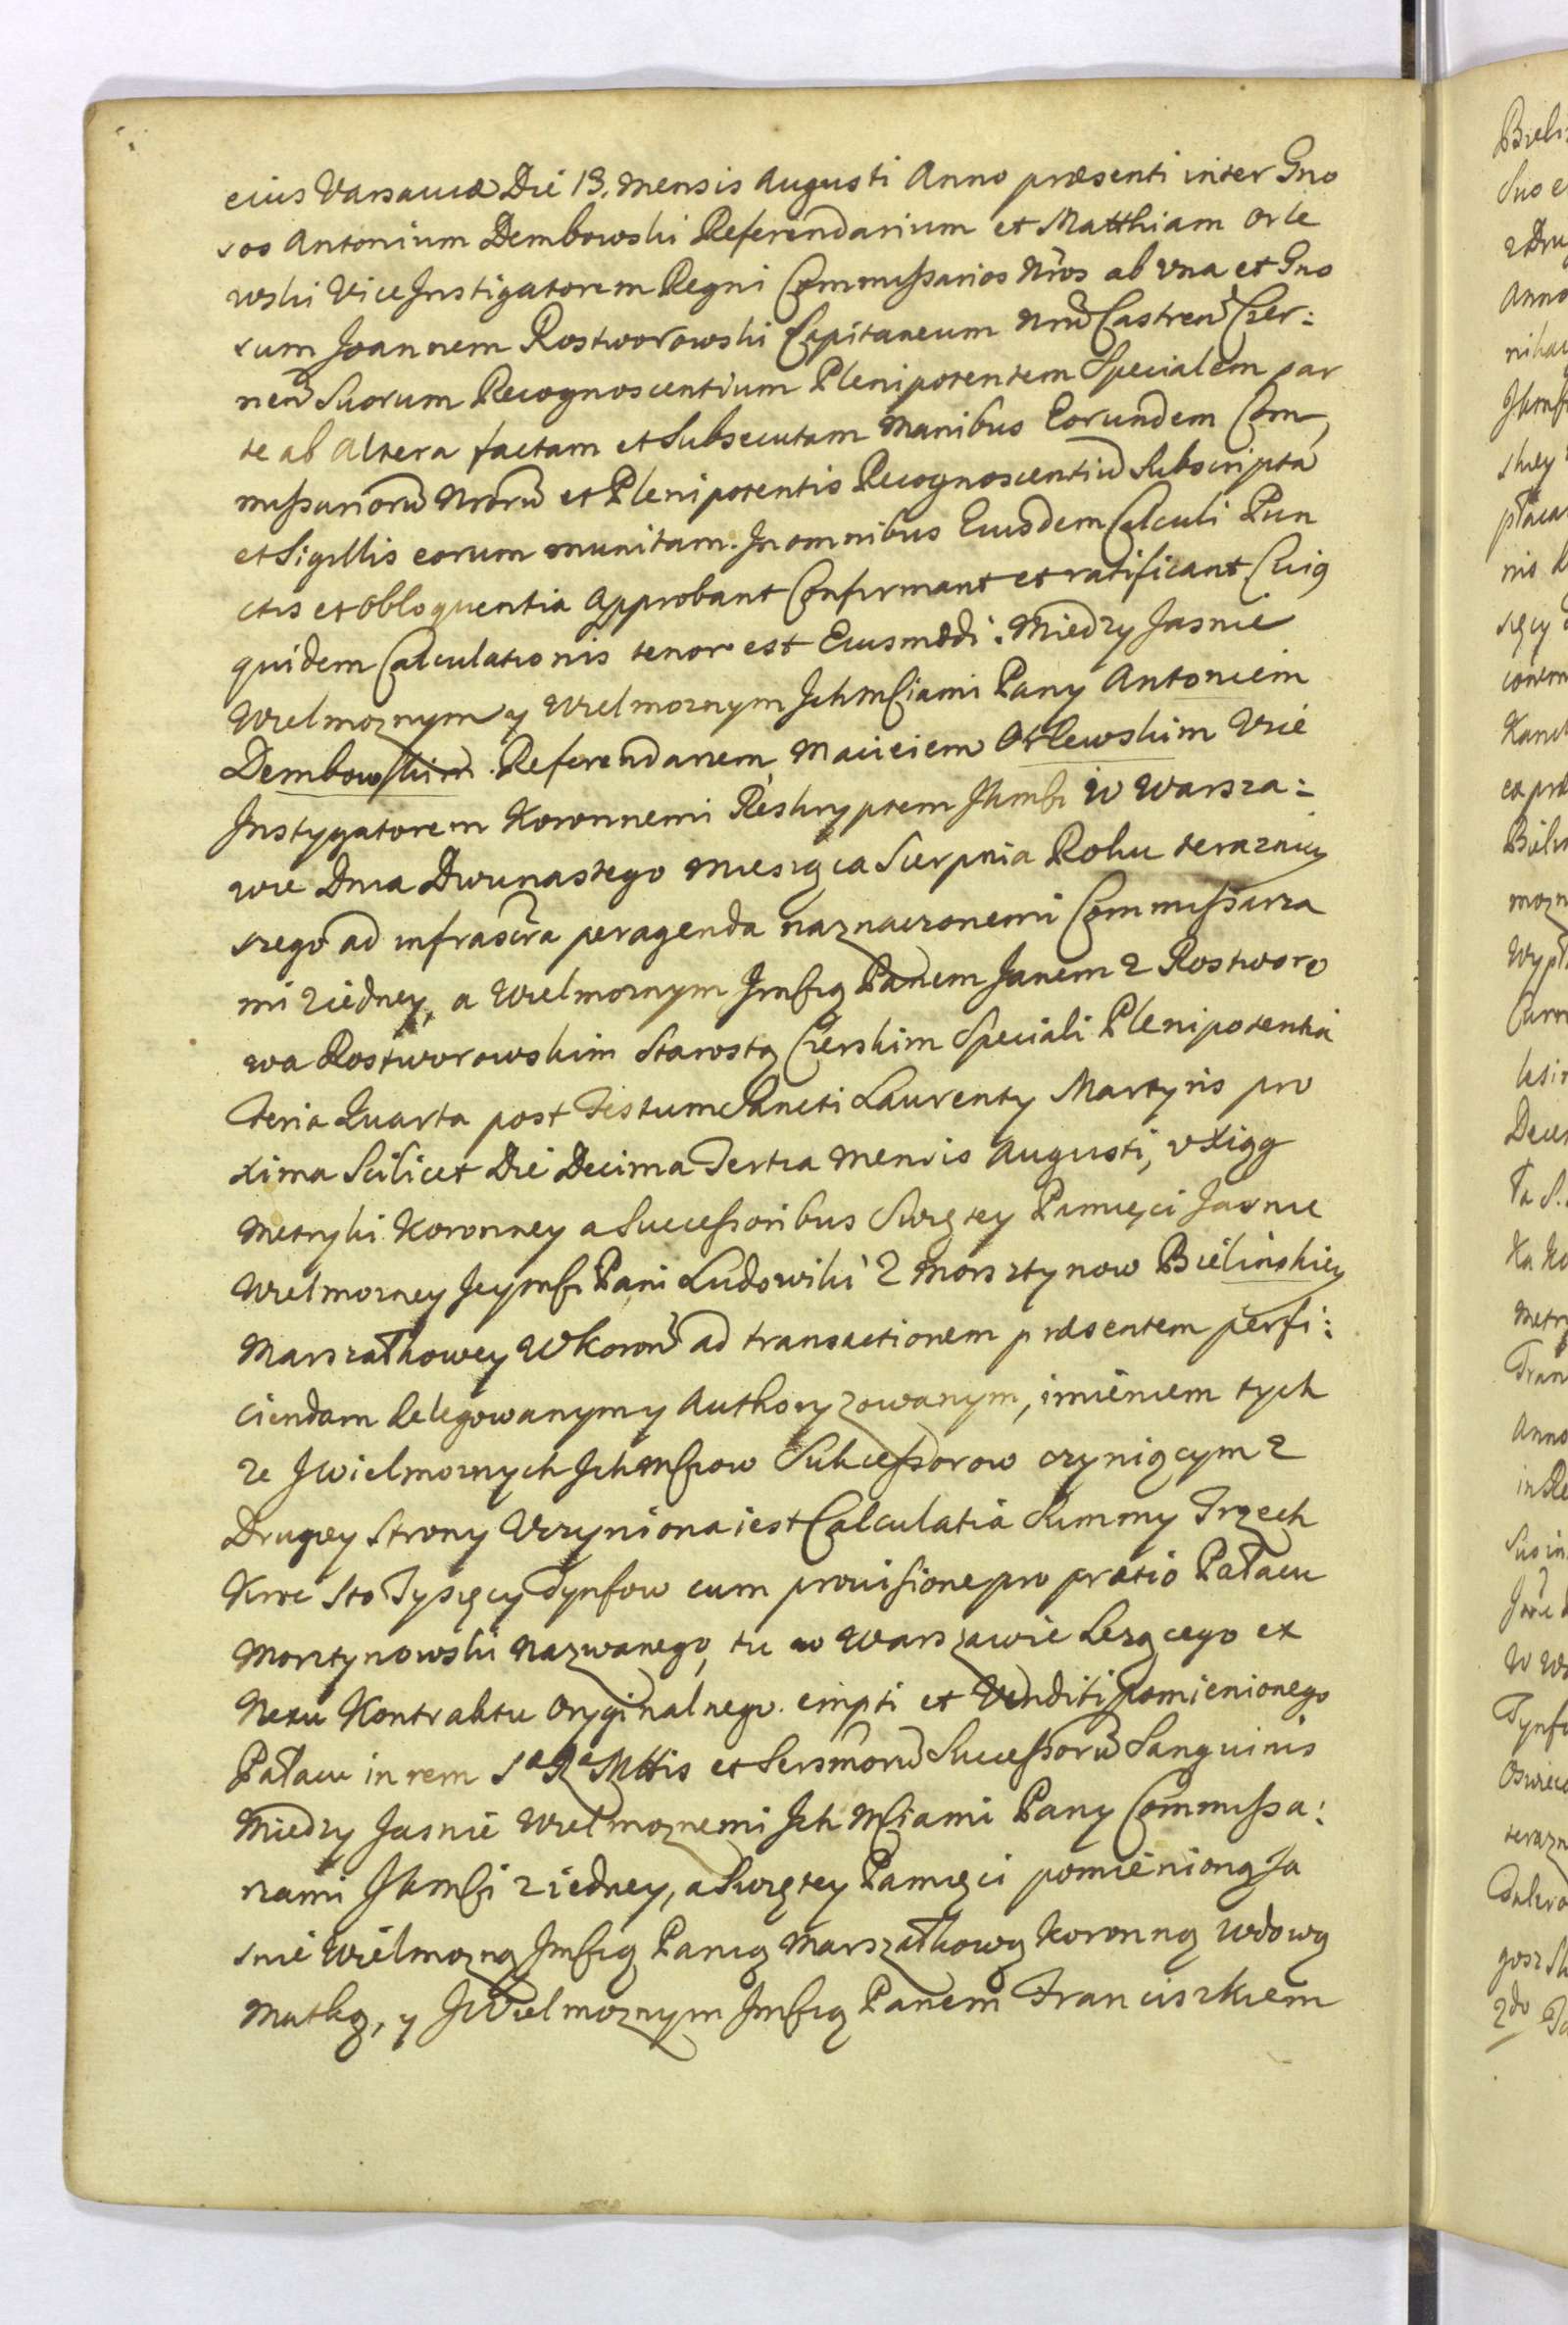 eius Varsaviæ Die 13. Mensis Augusti Anno præsenti inter Gno
sos Antonium Dembowski Referendarium et Matthiam Orle
wski Vice Instigatorem Regni Commissarios Nros ab Una et Gno
sum Joannem Rostworowski Capitaneum Nrum Castren Czer:
nen Suorum Recognoscentium Plenipotentem Specialem par
te ab Altera factam et Subsecutam Manibus Eorundem Com,
missariorũ Nrorũ et Plenipotentis Recognoscentiũ Subscripta
et Sigillis eorum munitam. In omnibus Eiusdem Calculi Pun
ctis et Obloquentia Approbant Confirmant et ratificant Cuig
quidem Calculationis tenor est Eiusmodi. Miedzy Jasnie
Wielmoznym y Wielmoznym Ich Mściami Pany Antoniem
Dembowskim Referendarzem, Macieiem Orlewskim Vice
Instygatorem Koronnemi Reskryptem JKmści W Warsza:
wie Dnia Dwunastego Miesiąca Sierpnia Roku terazniey
szego ad infrascra peragenda naznaczonemi Commissarza
mi z iedney, a Wielmoznym Jmścią Panem Janem z Rostworo
wa Rostworowskim Starostą Czerskim Speciali Plenipotentia
Feria Quarta post Festum Sancti Laurenty Martyris pro
xima Scilicet Die Decima Tertia Mensis Augusti, v Xigg
Metryki Koronney a Successoribus Swiętey Pamięci Jasnie
Wielmozney Jeymści Pani Ludowiki z Morsztynow Bielinskiey
Marszałkowey W Koron ad transactionem præsentem perfi:
ciendam Delegowanym y Authoryzowanym, imieniem tych
ze JWielmoznych Ich Mściow Sukcessorow czyniącym z
Drugiey Strony Uczyniona iest Calculatia Summy Trzech
Kroć Sto Tysięcy Tynfow cum provisione pro prætio Pałacu
Morsztynowski Nazwanego, tu w Warszawie Lezącego ex
Nexu Kontraktu Oryginalnego empti et Venditi pomienionego
Pałacu in rem Sæ Ræ Mttis et Sersmorũ Successorũ Sanguinis
Miedzy Jasnie Wielmoznemi Ich Mściami Pany Commissa:
rzami JKmści z iedney, a Swiętey Pamięci pomienioną Ja
snie Wielmozną Jmścią Panią Marszałkową Koronną Wdową
Matką, y JWielmoznym Jmścią Panem Franciszkiem